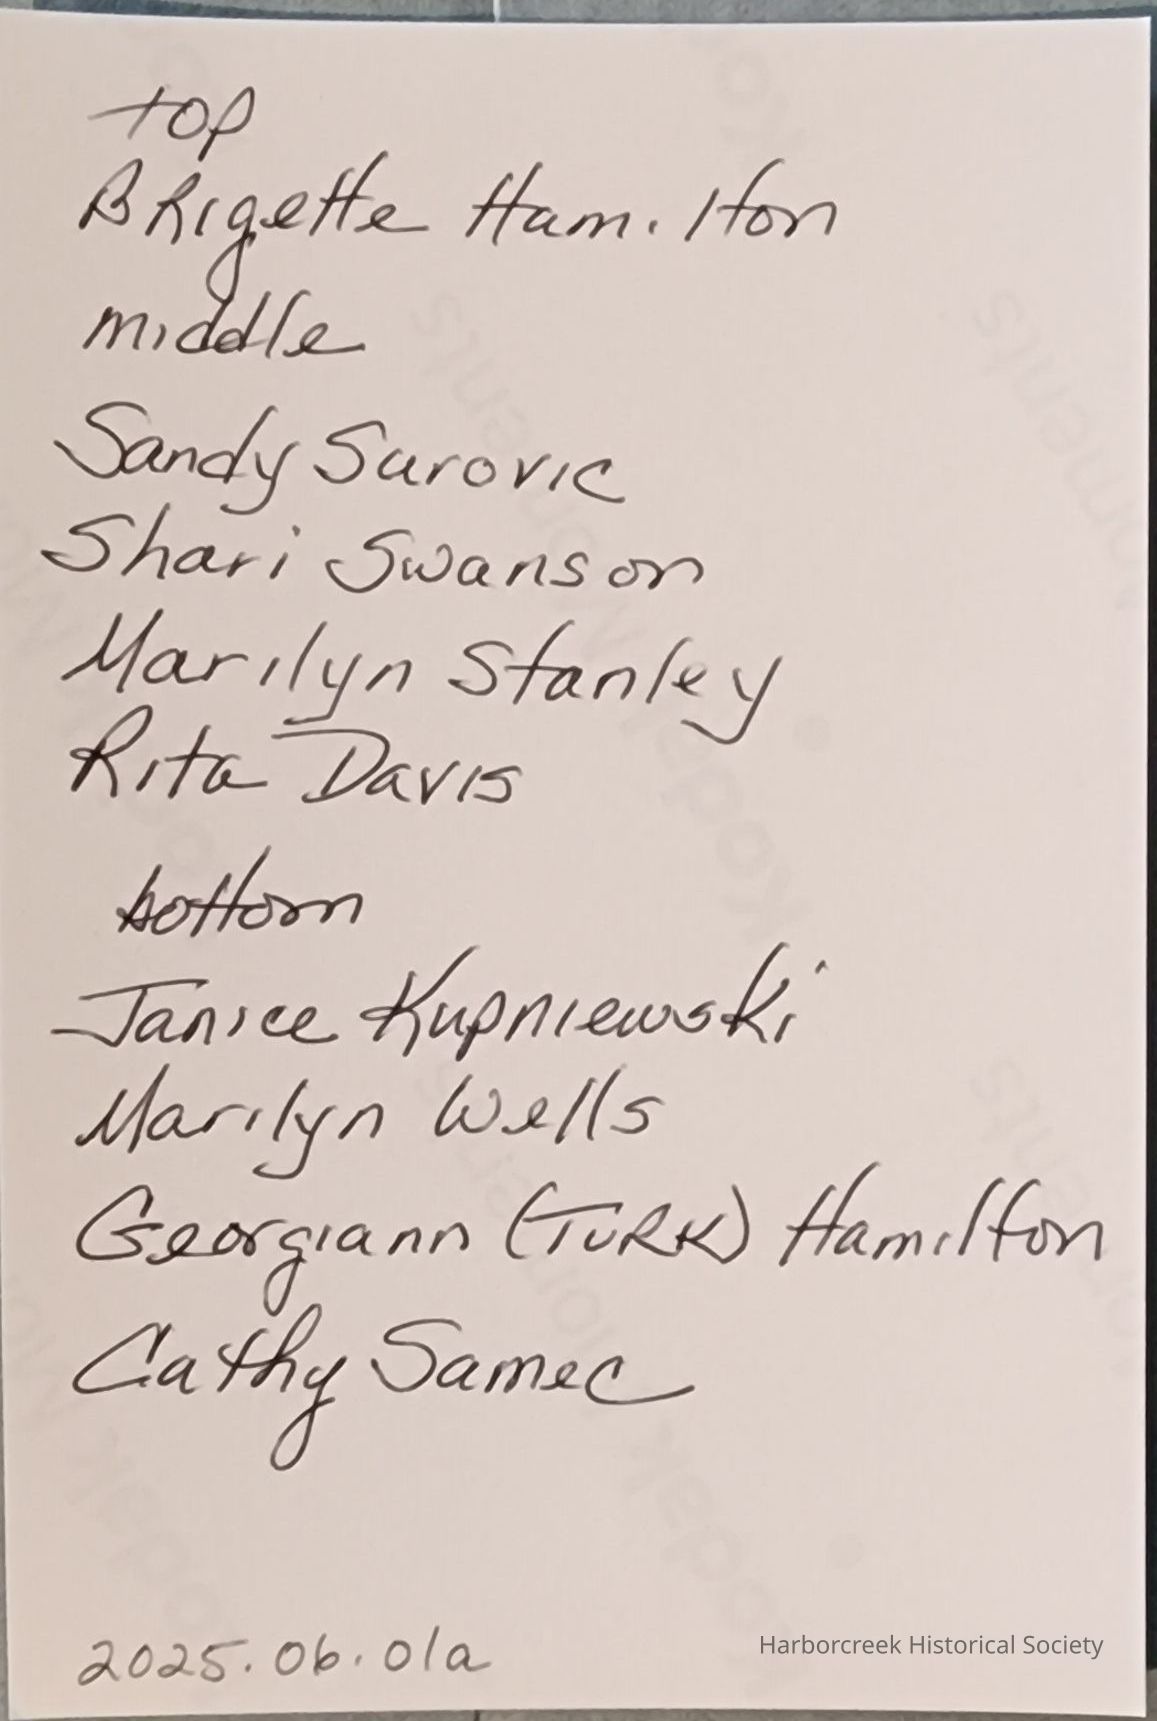 top
BRigette Hamilton
middle
Sandy Surovic
Shari Swanson
Marilyn Stanley
Rita Davis
bottom
Janice Kupniewski
Marilyn Wells
Georgiann (TURK) Hamilton
Cathy Samec
2025.06.01a
Harborcreek Historical Society